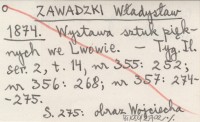 ZAWADZKI Władysław
1874. Wystawa sztuk pięk-
nych we Lwowie. — Tyg. Il.
ser. 2, t. 14, nr 355: 252;
nr 356: 268; nr 357: 274-
-275.
S. 275: obraz Wojciecha